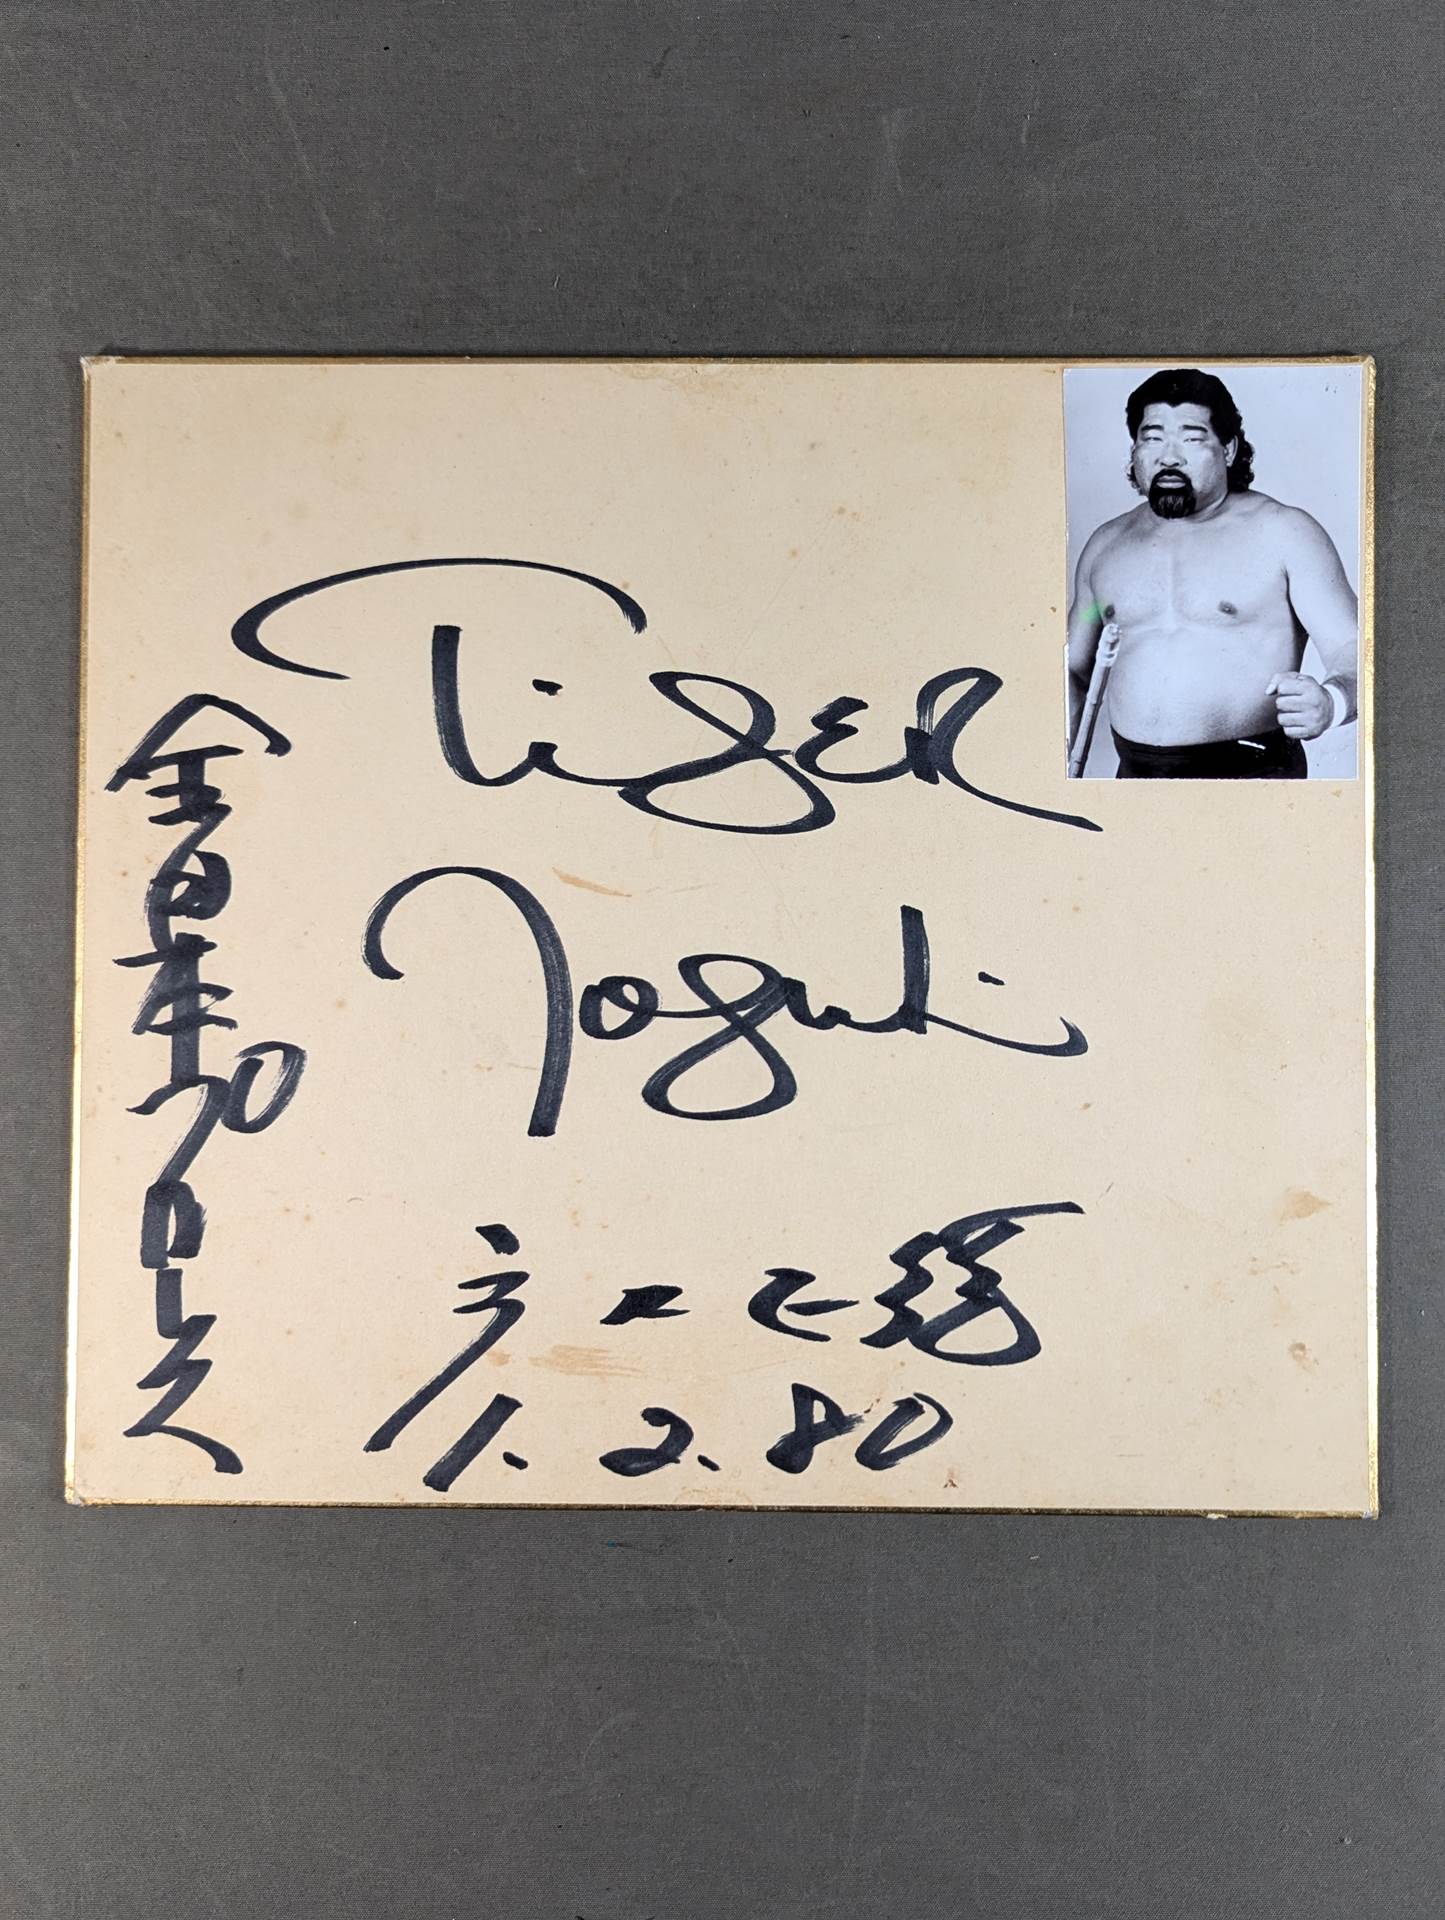 TiGER
Toguchi
戸口正徳
1.2.80
全日本プロレス